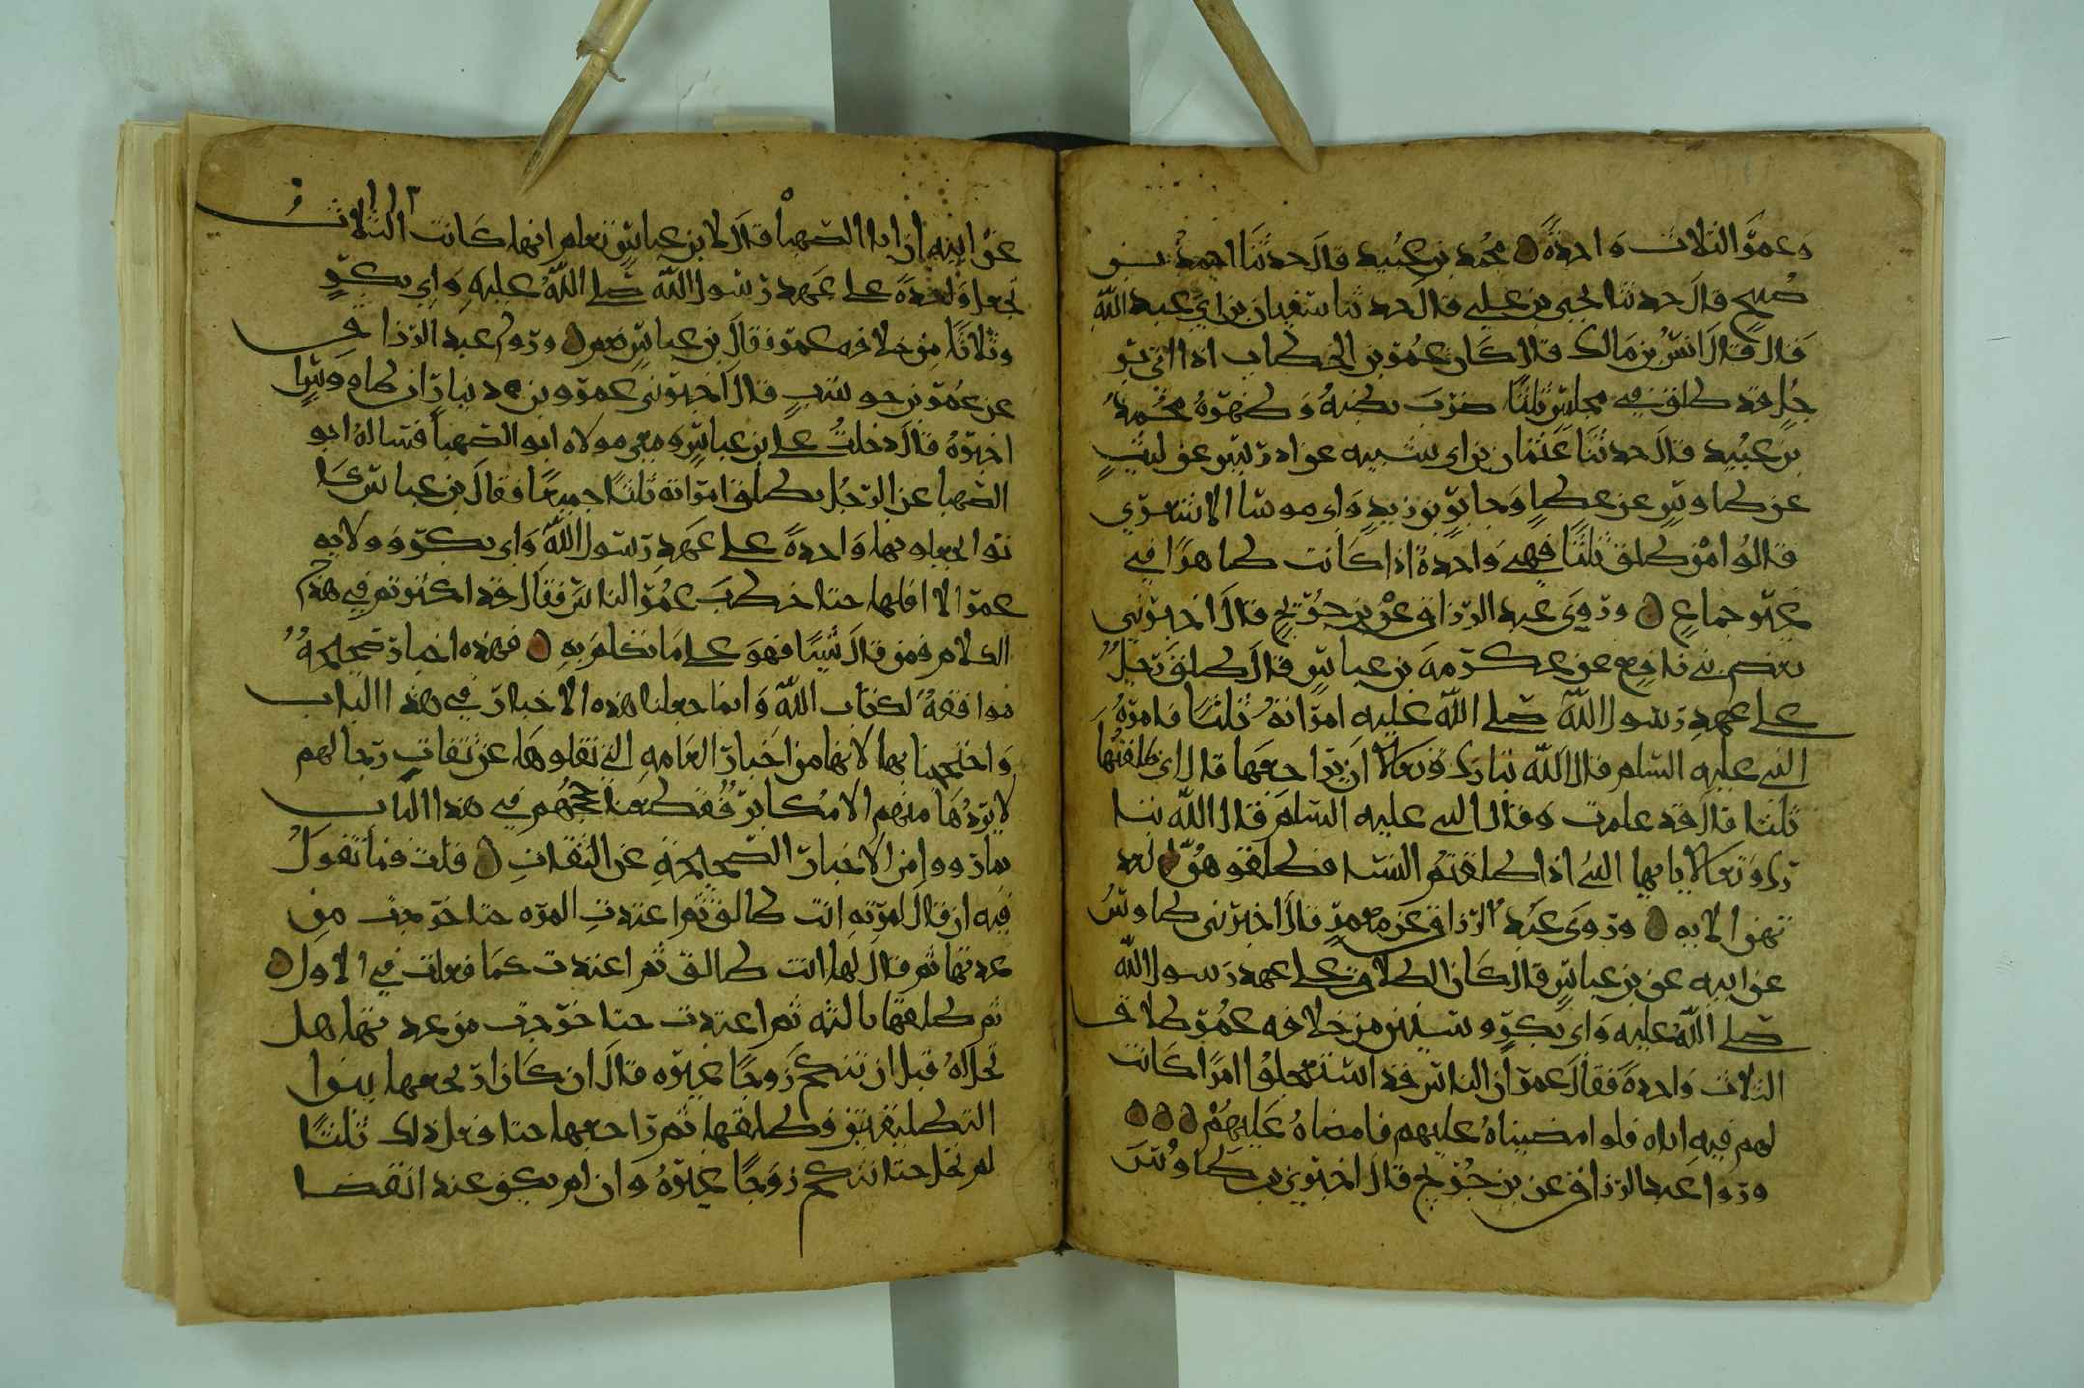 وعمر الثلاث واحدة محمد بن عبيد قال حدثنا احمد بن
صبيح قال حدثنا يحيى بن علي قال حدثنا سفيان بن ابي عبد الله
قال قال انس بن مالك قال كان عمر بن الخطاب اذا اتي بر
جل قد طلق في مجلس ثلثا ضرب بطنه وظهره محمد
بن عبيد قال حدثنا عثمان بن ابي شيبه عن ادريس عن ليث
عن طاوس عن عطا وجابر بن زيد وابي موسا الاشعري
قالوا امن طلق ثلثا فهي واحدة اذا كانت طاهرا في
غير جماع وروي عبد الرزاق عن بن جريج قال اخبرني
بعض بني نافع عن عكرمه بن عباس قال طلق رجل
على عهد رسول الله صلى الله عليه امراته ثلثا فامره
النبي عليه السلم قال الله تبارك وتعالا ان يراجعها قال اني طلقتها
ثلثا قال قد علمت وقال النبي عليه السلم قال الله تبا
رك وتعالا يا ايها النبي اذا طلقتم النسا فطلقوهن لعد
تهن الايه وروى عبد الرزاق عن معمر قال اخبرني طاوس
عن ابيه عن بن عباس قال كان الطلاق على عهد رسول الله
صلى الله عليه وابي بكر وسنين من خلافه عمر طلاق
الثلاث واحدة فقال عمر ان الناس قد استعجلوا امرا كانت
لهم فيه اناه فلو امضيناه عليهم فامضاه عليهم
وروا عبد الرزاق عن بن جريج قال اخبرني بن طاوس
١١٢
عن ابيه ان ابا الصهبا قال لابن عباس تعلم انها كانت الثلاث
تجعل واحدة على عهد رسول الله صلى الله عليه وابي بكر
وثلاثا من خلافه عمر فقال بن عباس نعم وروى عبد الرزاق
عن عمر بن حوشب قال اخبرني عمرو بن دينار ان طاووسا
اخبره قال دخلت على بن عباس ومعي مولاه ابو الصهبا فساله ابو
الصهبا عن الرجل يطلق امراته ثلثا جميعا فقال بن عباس كا
نوا يجعلونها واحدة على عهد رسول الله وابي بكر وولايه
عمر الا اقلها حتا خطب عمر الناس فقال قد اكثرتم في هذا
الكلام فمن قال شيئا فهو على ما تكلم به فهذه اخبار صحيحة
موافقة لكتاب الله وانما جعلنا هذه الاخبار في هذا الباب
واحتججنا بها لانها من اخبار العامه التي نقلوها عن ثقات رجالهم
لا يردها منهم الا مكابر فقطعنا حججهم في هذا الباب
بما رووا من الاخبار الصحيحة عن الثقات قلت فما تقول
فيه ان قال لمرته انت طالق ثم اعتدت المره حتا خرجت من
عدتها ثم قال لها انت طالق ثم اعتدت كما فعلت في الاول
ثم طلقها بالثه ثم اعتدت حتا خرجت من عدتها هل
تحل له قبل ان تنكح زوجا غيره قال ان كان ارتجعها بين
التطليقتين وطلقها ثم راجعها حتا فعل ذلك ثلثا
لم تحل حتا تنكح زوجا غيره وان لم يكن عند انقضا